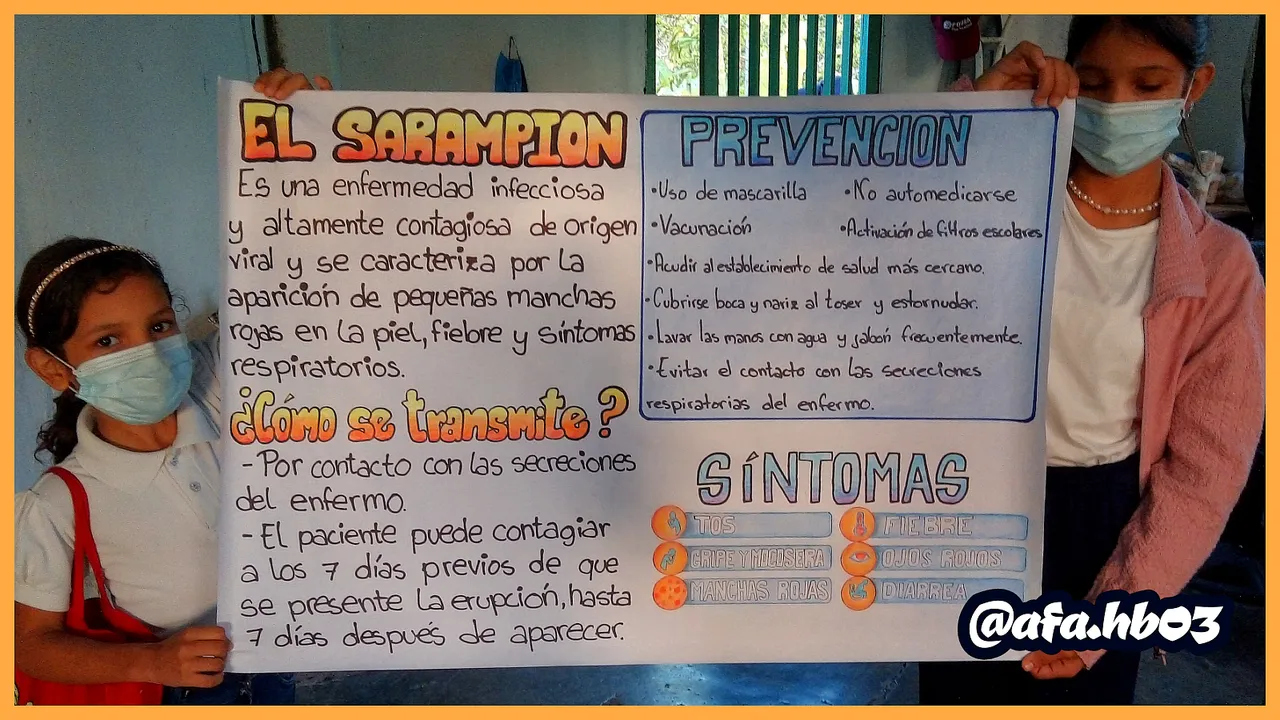 EL SARAMPION
Es una enfermedad infecciosa
y altamente contagiosa de origen
viral y se caracteriza por la
aparición de pequeñas manchas
rojas en la piel, fiebre y síntomas
respiratorios.
¿Cómo se transmite?
- Por contacto con las secreciones
del enfermo.
- El paciente puede contagiar
a los 7 días previos de que
se presente la erupción, hasta
7 días después de aparecer.
PREVENCION
•Uso de mascarilla •No automedicarse
•Vacunación •Activación de filtros escolares
•Acudir al establecimiento de salud más cercano.
•Cubrirse boca y nariz al toser y estornudar.
•Lavar las manos con agua y jabón frecuentemente.
•Evitar el contacto con las secreciones
respiratorias del enfermo.
SÍNTOMAS
TOS FIEBRE
GRIPE Y MOCOSERA OJOS ROJOS
MANCHAS ROJAS DIARREA
@afa.hb03